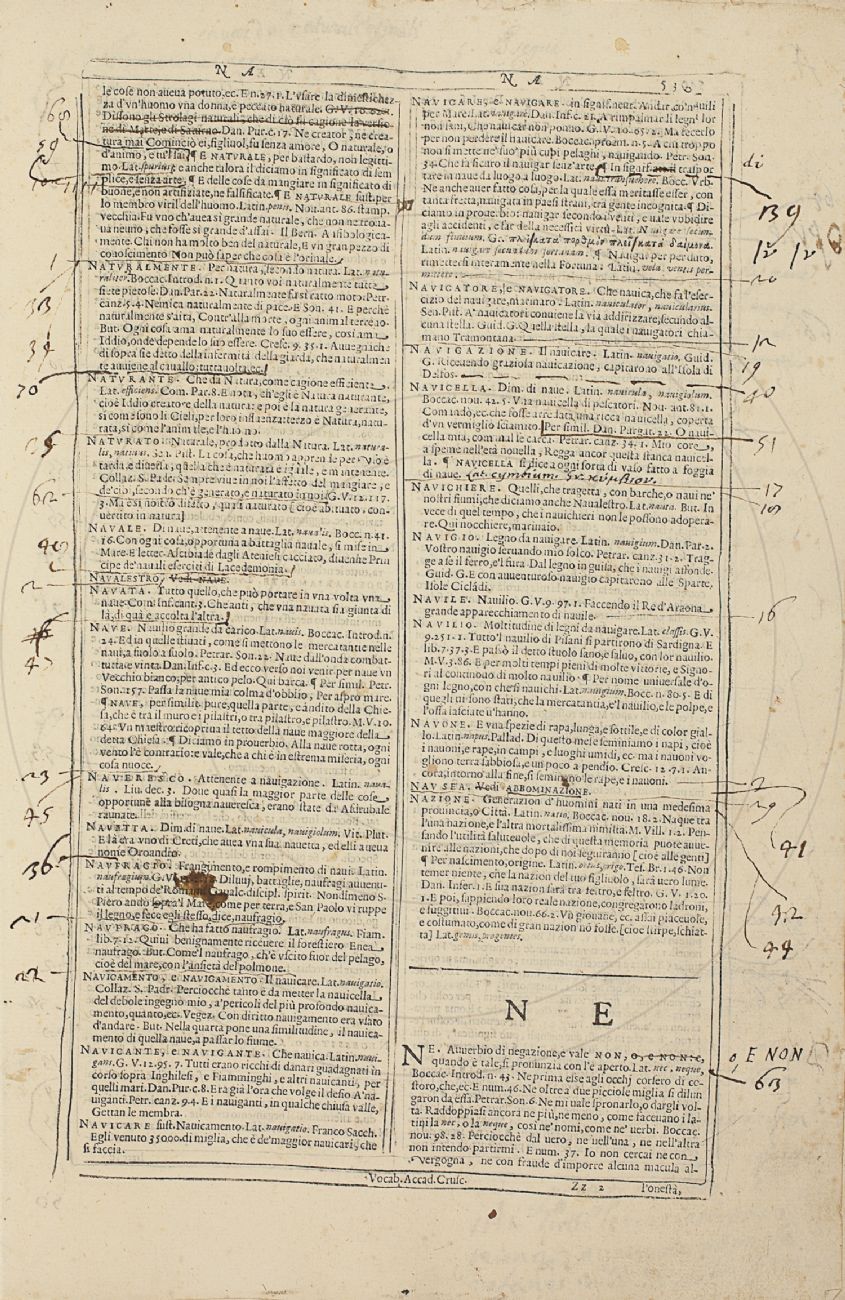 N A
le cose non aueua potuto, ec. E n. 27. 1. L'vsare la dimestichez
za d'vn'huomo vna donna, è peccato naturale.
Dissono gli Strolagi naturali, che di ciò fu cagione la versio
ne di Dan. Pur. c. 17. Ne creator, ne crea
tura mai Cominciò ei, figliuol, fu senza amore, O naturale, o
d'animo, e tu 'l sai. ¶ E NATURALE, per bastardo, non legitti-
mo. Lat. spurius: e anche talora il diciamo in significato di sem
plice, e senza arte. ¶ E delle cose da mangiare in significato di
buone, e non artifiziate, ne falsificate. ¶ E NATURALE sust. per
lo membro viril dell'huomo. Latin. penis. Nou. ant. 86. stamp.
vecchia. Fu vno ch'auea sì grande naturale, che non
che fosse sì grande d'assai. Il Bern.
mente. Chi non ha molto ben del naturale, E vn gran pezzo di
conoscimento Non può saper che cosa è l'orinale.
NATURALMENTE. Per natura, secondo natura. Lat. natu-
raliter. Boccac. Introd. n. 1. Quanto voi naturalmente tutte
siete pietose. Dan. Par. 22. Naturalmente fu sì ratto moto. Petr.
canz. 5. 4. Nemica naturalmente di pace. E Son. 41. E perchè
naturalmente s'aita, Contr'alla morte, ogni animal terreno.
But. Ogni cosa ama naturalmente lo suo essere, così ama
Iddio, onde depende lo suo essere. Cresc. 9. 35. 1. Auuegnachè
di sopra sie detto della infermità della giarda, che naturalmen
te auuiene al cauallo; tutta uolta, ec.
NATURANTE. Che dà Natura, come cagione efficiente.
Lat. efficiens. Com. Par. 8. E nota, ch'egli è Natura naturante,
cioè Iddio creatore della natura: e poi è la natura generante,
sì come sono li Cieli, per loro influenza: terzo è Natura, natu-
rata, sì come l'animale, e l'huomo.
NATURATO. Naturale, prodotto dalla Natura. Lat. natura-
lis, natiuus. La cosa, che huomo apprende per vso è
tarda, e diuersa; quella che è naturata è iguale, e
Collaz. S. Padr. Sempre viue in noi l'affetto del mangiare,
de' cio, secondo ch'è generato, e naturato in noi. G. V. 12. 117.
3. Ma è sì nostro difetto, quasi naturato [cioè abituato, con-
uertito in natura]
NAVALE. Di naue, attenente a naue. Lat. naualis. Bocc. n. 41.
16. Con ogni cosa opportuna a battaglia nauale, si mise in
Mare. E letter. Alcibiade dagli Ateniesi cacciato, diuenne Prin
cipe de' nauali eserciti di Lacedemonia.
NAVALESTRO, Vedi NAVE.
NAVATA. Tutto quello, che può portare in vna volta vna
naue. Com. Inf. cant. 3. Che anti, che vna nauata sia giunta di
là, di quà è accolta l'altra.
NAVE. Nauilio grande da carico. Lat. nauis. Boccac. Introd. n.
24. Ed in quelle stiuati, come si mettono le mercatantie nelle
naui, a suolo a suolo. Petrar. Son. 22. Naue dall'onda combat-
tuta e vinta. Dan. Inf. c. 3. Ed ecco verso noi venir per naue vn
Vecchio bianco, per antico pelo: Qui barca. ¶ Per simil. Petr.
Son. 157. Passa la naue mia colma d'obblio, Per aspro mare.
¶ NAVE, per similit. pure, quella parte, e àndito della Chie-
sa, che è tra il muro e i pilastri, o tra pilastro, e pilastro. M. V. 10.
64. Vn maestro ricopriua il tetto della naue maggiore della
detta Chiesa. ¶ Diciamo in prouerbio. Alla naue rotta, ogni
vento l'è contrario: e vale, che a chi è in estrema miseria, ogni
cosa nuoce.
NAVERESCO. Attenente a nauigazione. Latin. naua-
lis. Liu. dec. 3. Doue quasi la maggior parte delle cose
opportune alla bisogna naueresca, erano state da Asdrubale
raunate.
NAVETTA. Dim. di naue. Lat. nauicula, nauigiolum. Vit. Plut.
E là era vno di Creti, che auea vna sua nauetta, ed elli auea
nome Oroandio.
NAUFRAGIO. Frangimento, e rompimento di naui. Latin.
naufragium. G. V. Diluuj, battaglie, naufragi auuenu-
ti al tempo de' Romani Caualc. discipl. spirit. Non simeno S.
Piero ando sopra 'l Mar, come per terra, e San Paolo vi ruppe
il legno, e fece egli stesso, dice, naufragio.
NAUFRAGO. Che ha fatto naufragio. Lat. naufragus. Fiam.
lib. 7. 12. Quiui benignamente riceuere il forestiero Enea
naufrago. But. Come 'l naufrago, ch'è vscito fuor del pelago,
cioè del mare, con l'ansietà del polmone.
NAVICAMENTO, e NAVIGAMENTO. Il nauicare. Lat. nauigatio.
Collaz. S. Padr. Perciocchè tanto è da metter la nauicella
del debole ingegno mio, a' pericoli del più profondo nauica-
mento, quanto, ec. Vegez. Con diritto nauigamento era vsato
d'andare. But. Nella quarta pone una similitudine, il nauica-
mento di quella naue, a passar lo fiume.
NAVICANTE, e NAVIGANTE. Che nauica. Latin. naui-
gans. G. V. 12. 95. 7. Tutti erano ricchi di danari guadagnati in
corso sopra Inghilesi, e Fiamminghi, e altri nauicanti, per
quelli mari. Dan. Pur. c. 8. Era già l'ora che volge il desio A' na-
uiganti. Petr. canz. 9. 4. E i nauiganti, in qualche chiusa valle,
Gettan le membra.
NAVICARE sust. Nauicamento. Lat. nauigatio. Franco Sacch.
Egli venuto 35000. di miglia, che è de' maggior nauicari, che
si faccia.
N A 535
NAVICARE, e NAVIGARE. in signific. neut. Andar, co' nauili
per Mare. Lat. nauigare. Dan. Inf. c. 21. A rimpalmar li legni lor
non sani, Che nauicar non ponno. G. V. 10. 65. 2. Ma fecerlo
per non perdere il nauicare. Boccac. proem. n. 5. A chi troppo
non si mette ne' suo' più cupi pelaghi, nauigando. Petr. Son.
34. Che fa sicuro il nauigar senz'arte. ¶ In signific. att. traspor
tare in naue da luogo a luogo. Lat. naui transuehere. Bocc. Vrb.
Ne anche auer fatto cosa, per la quale essa meritasse esser, con
tanta fretta, nauigata in paesi strani, tra gente incognita. ¶ Di-
ciamo in prouerbio: nauigar secondo i venti, e uale vbbidire
agli accidenti, e far della necessità virtù. Lat. Nauigare secun-
dum fluuium. Gr.
Latin.
rimettersi interamente nella Fortuna. Latin. vela ventis per-
mittere.
NAVICATORE, e NAVIGATORE. Che nauica, che fa l'eser-
cizio del nauigare, marinaro. Latin. nauiculator, nauicularius.
Sen. Pist. A' nauicatori conuiene la via addirizzare, secondo al-
cuna stella. Guid. G. Quella stella, la quale i nauigatori chia-
mano Tramontana.
NAVIGAZIONE. Il nauicare. Latin. nauigatio. Guid.
G. Riceuendo graziosa nauicazione, capitarono all'Isola di
Delfos.
NAVICELLA. Dim. di naue. Latin. nauicula, nauigiolum.
Boccac. nou. 42. 5. V. 12 nauicella di pescatori. Nou. ant. 81. 1.
Comandò, ec. che fosse arredata, una ricca nauicella, coperta
d'un vermiglio sciamito. Per simil. Dan. Purgat. 32. O naui-
cella mia, com mal se carca. Petrar. canz. 34. 1. Mio core,
a speme nell'età nouella, Regga ancor questa stanca nauicel-
la. ¶ NAVICELLA si dice a ogni sorta di vaso fatto a foggia
di naue. Lat. cymbium. Gr. κυμβίον.
NAVICHIERE. Quelli, che tragetta, con barche, o naui ne'
nostri fiumi, che diciamo anche Naualestro. Lat. nauta. But. In
vece di quel tempo, che i nauichieri non le possono adopera-
re. Qui nocchiere, marinaio.
NAVIGIO. Legno da nauigare. Latin. nauigium. Dan. Par. 2.
Vostro nauigio seruando mio solco. Petrar. canz. 31. 2. Trag-
ge a sè il ferro, e 'l fura Dal legno in guisa, che i nauigi affonde.
Guid. G. E con auuenturoso nauigio capitareno alle Sparte,
Isole Cicladi.
NAVILE. Nauilio. G. V. 9. 97. 1. Faccendo il Re d'Araona
grande apparecchiamento di nauile.
NAVILIO. Moltitudine di legni da nauigare. Lat. classis. G. V.
9. 251. 1. Tutto 'l nauilio di Pisani si partirono di Sardigna. E
lib. 7. 37. 3. E passò il detto stuolo sano, e saluo, con lor nauilio.
M. V. 3. 86. E per molti tempi pieni di molte vittorie, e Signo-
ri al continouo di molto nauilio. ¶ Per nome uniuersale d'o-
gni legno, con che si nauichi. Lat. nauigium. Bocc. n. 80. 5. E di
que gli ne sono stati, che la mercatantia, e 'l nauilio, e le polpe, e
l'ossa lasciate u'hanno.
NAVONE. È vna spezie di rapa, lunga, e sottile, e di color gial-
lo. Latin. napus. Pallad. Di questo mese seminiamo i napi, cioè
i nauoni, e rape, in campi, e luoghi umidi, ec. ma i nauoni vo-
gliono terra sabbiosa, e un poco a pendio. Cresc. 12. 7. 1. An-
cora, intorno alla fine, si seminano le rape, e i nauoni.
NAUSEA. Vedi ABBOMINAZIONE.
NAZIONE. Generazion d'huomini nati in una medesima
prouincia, o Città. Latin. natio. Boccac. nou. 18. 2. Naque tra
l'una nazione, e l'altra mortalissima nimistà. M. Vill. 1. 2. Pen-
sando l'utilità saluteuole, che di questa memoria puote auue-
nire alle nazioni, che dopo di noi seguiranno [cioè alle genti]
¶ Per nascimento, origine. Latin. ortus, origo. Tes. Br. 1. 46. Non
temer niente, che la nazion del tuo figliuolo, sarà uero lume.
Dan. Infer. 1. E sua nazion sarà tra feltro, e feltro. G. V. 1. 20.
1. E poi, sappiendo loro reale nazione, congregarono ladroni,
e fuggitiui. Boccac. nou. 66. 2. Vn giouane, ec. assai piaceuole,
e costumato, come di gran nazion nò fosse. [cioe stirpe, schiat-
ta] Lat. genus, progenies.
N E
NE. Auuerbio di negazione, e vale NON, O, E NON, e,
quando è tale, si pronunzia con l'e aperto. Lat. nec, neque,
Boccac. Introd. n. 43. Ne prima esse agli occhj corsero di co-
storo, che, ec. E num. 46. Ne oltre a due picciole miglia si dilun
garon da essa. Petrar. Son. 6. Ne mi uale spronarlo, o dargli vol-
ta. Raddoppiasi ancora ne più, ne meno, come faceuano i la-
tini la nec, o la neque, così ne' nomi, come ne' uerbi. Boccac.
nou. 98. 28. Perciocchè dal uero, ne nell'una, ne nell'altra
non intendo partirmi. E num. 37. Io non cercai ne con
vergogna, ne con fraude d'imporre alcuna macula al-
Vocab. Accad. Crusc. Zz 2 l'onestà,
168
59
1
33
34
70
62
2
47
23
45
36
21
22
di
139
12 12
20
12
19
40
51
17
16
2
29
41
42
44
o, E NON
63